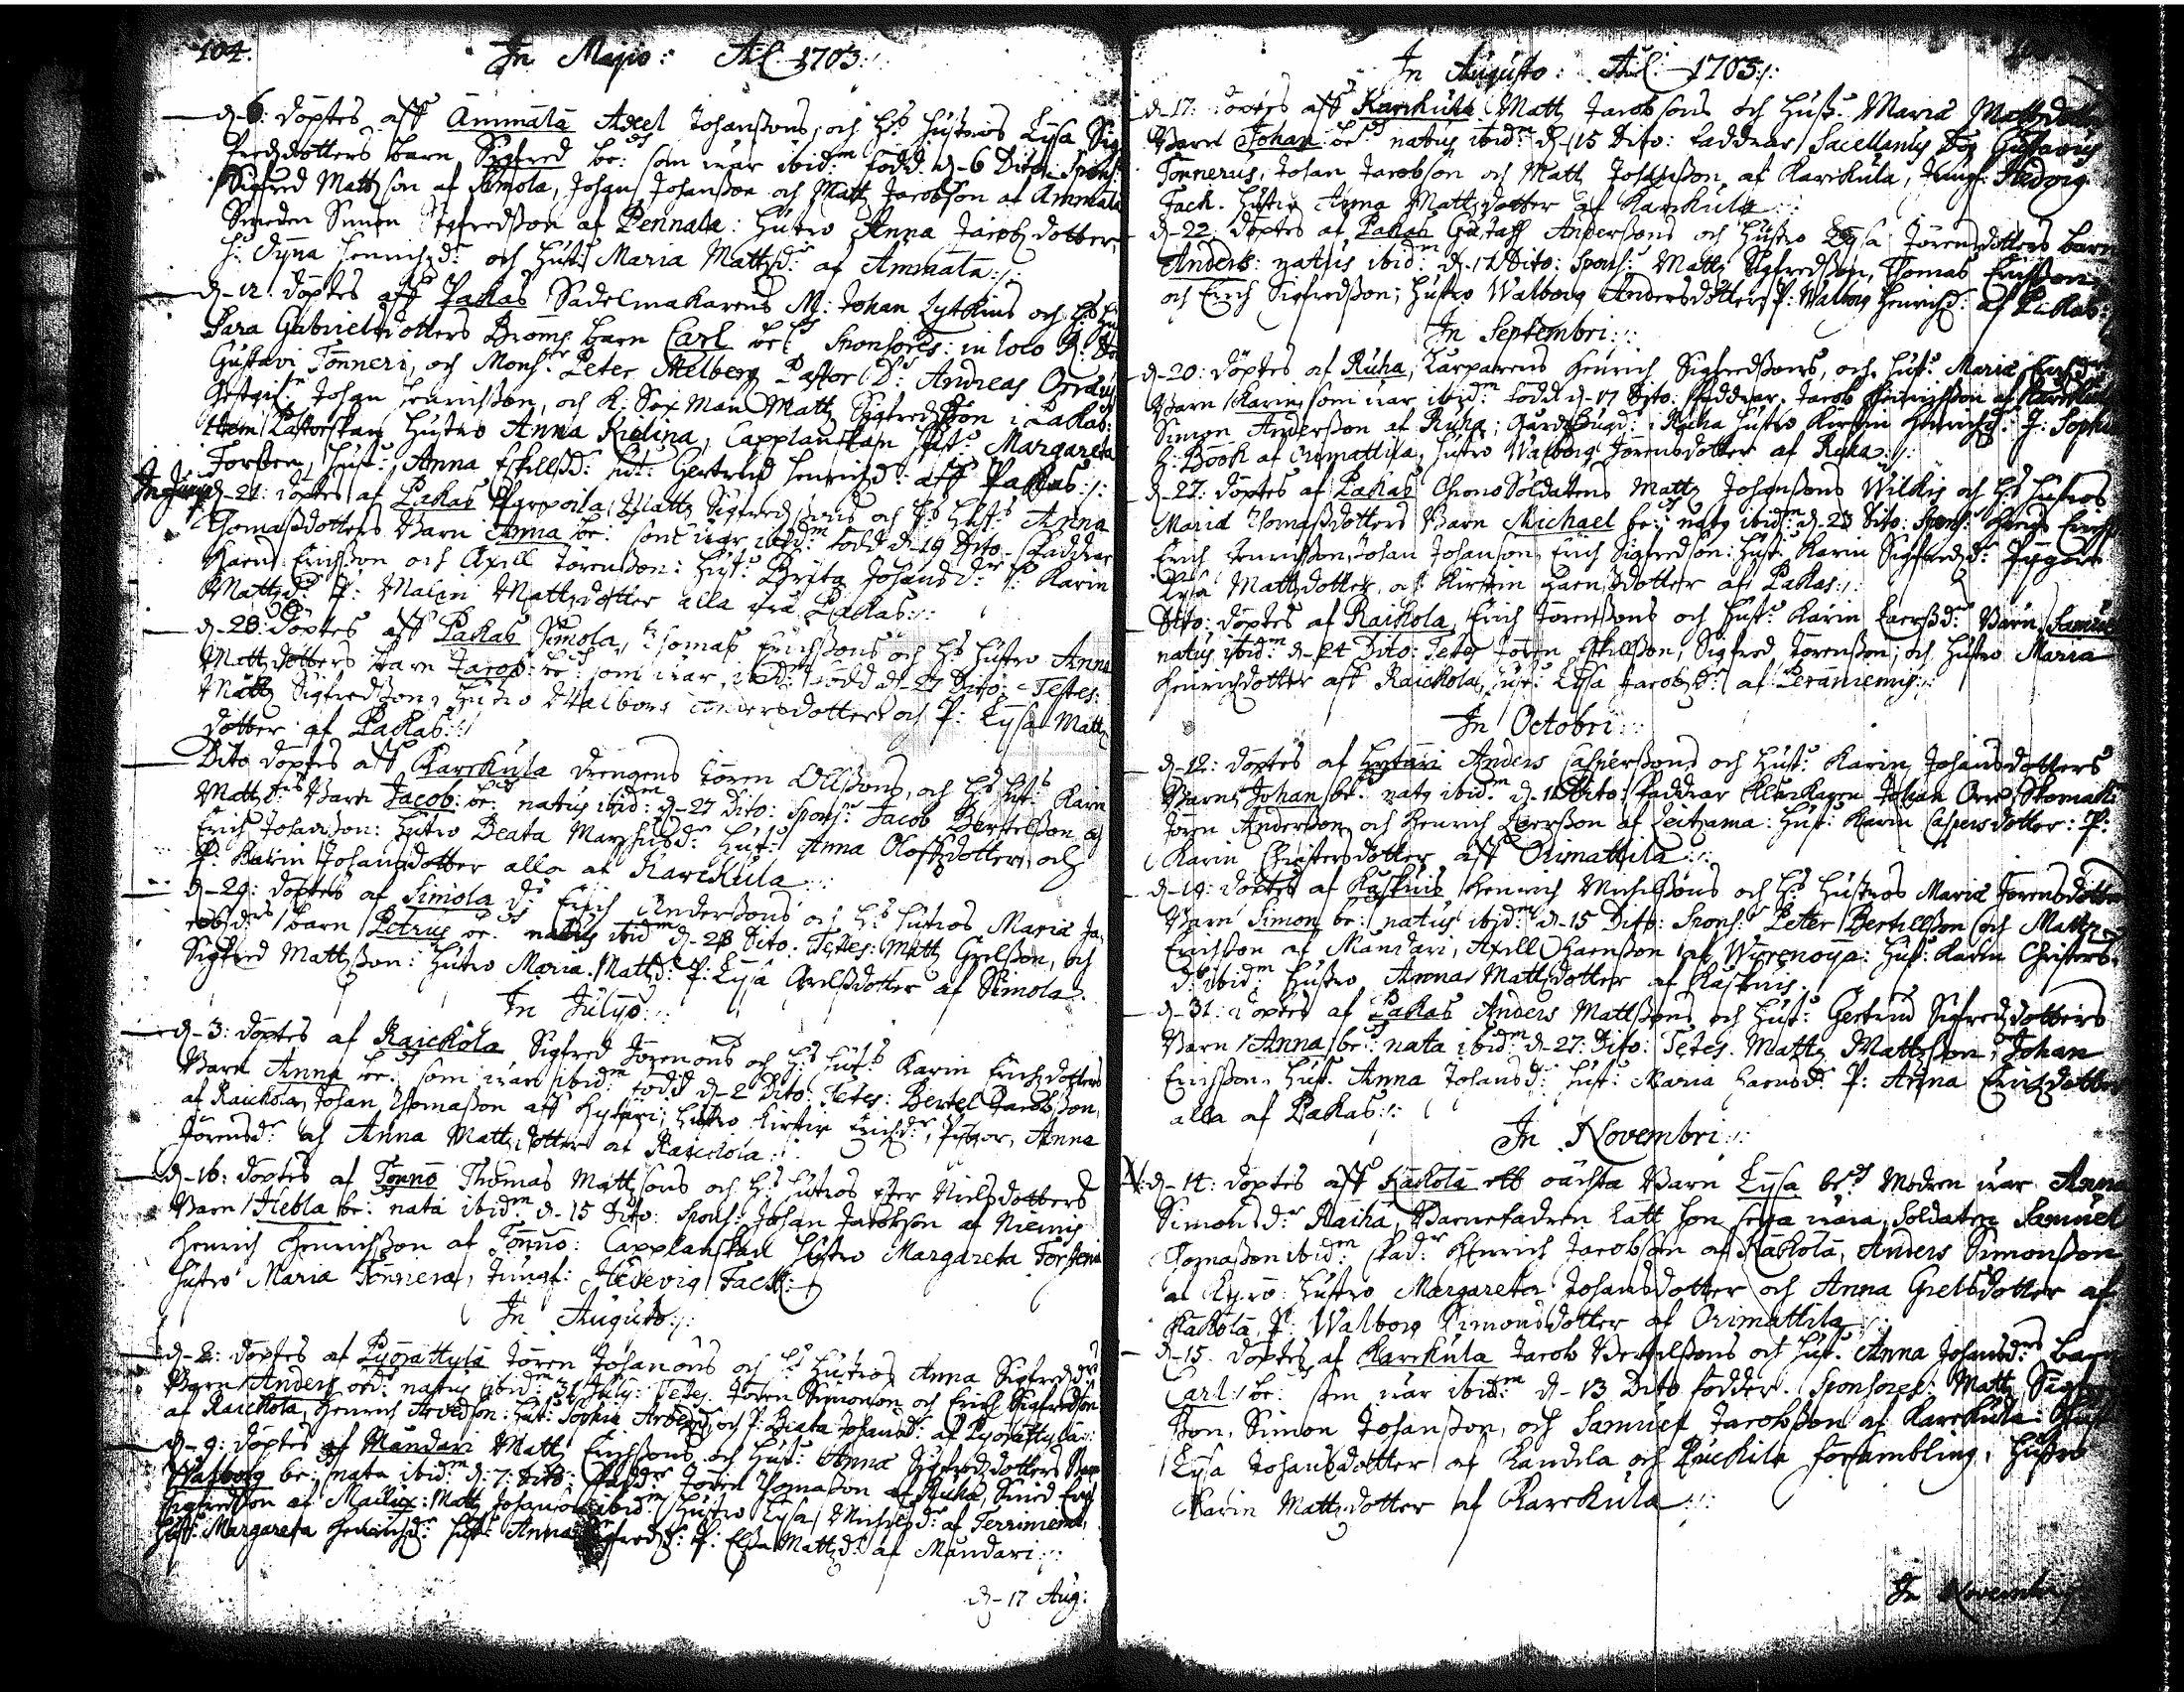 104. In Majo: A:o 1703:/:
d. 6: döptes aff Ammäla Axel Johanssons, och hs hustrus Lysa Sig-
fredzdotters barn Sigfred be:d som war ibid:m född d. 6 Dito: Spons:
Sigfred Mattzson af Simola, Johan Johansson och Matz Jacobson af Ammäla
Smeden Simon Sigfredsson af Pennala: hustro Anna Jacobzdotter,
Henrichzd:r och Hust: Maria Mattzd:r af Ammäla:/:
d. 12. döptes aff Pakas Sadelmakarens M: Johan Lytkins och hs
Sara Gabrielsdotters Broms barn Carl be:d Sponsores: in loco
Gustavi Tönneri, och Mons:r Peter Melberg Pastor D: Andreas
Johan Henrichsson, och K: Sex Man Mattz Sigfredsson i Pakas:
Pastorskan Hustro Anna Krelina, Capplanskan Hust: Margareta
Forsten, Hust: Anna Eskillsd: hu: Gertrud Henrichzd: aff Pakas:/:
In Junio d. 21: döptes af Pakas Mattz Sigfredssons och hs Hust: Anna
Thomassdotters Barn Anna be: som war ibid:m född d. 19 Dito. Faddrar
Ericsson och Axell Jörensson: Hust: Brita Johansd:r P: Karin
Mattzd:r P: Malin Mattzdotter alla frå Pakas:/:
d. 28: döptes aff Pakas Simola, Thomas Erichssons och hs hustro Anna
Mattzdotters barn Jacob be:d som war ibid:m född d. 27 Dito: Testes:
Mattz Sigfredsson, Hustro Walborg Andersdotter och P: Lysa Mattz
dotter af Pakas:/:
Dito döptes aff Karckula drengens Jören Ollssons, och hs hust: Karin
Mattzd:rs Barn Jacob: be:d natus ibid:m d. 27 Dito: Spons: Jacob Bertelsson och
Erich Johansson: Hustro Beata Marchusd:r Hust: Anna Olofzdotter, och
P: Karin Johansdotter alla af Karckula:/:
d. 29: döptes af Simola Erich Anderssons och hs hustros Maria Ja-
cobzd:rs barn Petrus be:d natus ibid:m d. 28 Dito: Testes: Mattz Grelsson, och
Sigfred Mattzsson: Hustro Maria Mattzd: P: Lysa Grelssdotter af Simola.
In Julyo:/:
d. 3: döptes af Raickola Sigfred Jörensons och hs hust:s Karin Erichzdotters
Barn Anna be:d som war ibid:m född d. 2 Dito: Testes: Bertel Jacobsson,
af Raickola, Johan Thomasson aff Hytäri; hustro Kirstin Erichzd:r, Pygor, Anna
Jörensd:r och Anna Mattzdotter af Raickola:/:
d. 16: döptes af Tönnö Thomas Mattsons och hs hustros Nielsdotters
Barn Hebla be:d nata ibid:m d. 15 Dito: Spons: Johan Jacobson af Niemis
Henrich Henrichsson af Tönnö: Capplanskan Hustro Margareta Forstenia
hustro Maria Tönnera, Jungf: Hedevig Fack:/:
In Augusto:/:
d. 2: döptes af Pyörättylä Jören Johansons och hs hustros Anna Sigfredzd:rs
Barn Anders be:d natus ibid:m 31 July: Testes. Jören Simonson och Erich Sigfredson
af Raickola, Henrich Arvedson: hu: Sophia Arvedsd: och P: Beata Johansd: af Pyörättylä:/:
d. 9: döptes af Mandari Mattz Erichssons och Hust: Anna Sigfredzdotters Barn
Walborg be:d nata ibid:m d: 7: Dito: Fadd:r Jören Thomasson af Ruha, Smed Erich
Sigfredson af Mallux: Mattz Johanson ibid:m Hustro Lysa Michelsd: af Terriniemi,
Hust: Margareta Henrichzd: Hust: Anna Sigfredzd: P: Elssa Mattzd: af Mandari:/:
d. 17 Aug:
In Augusto: A:o 1703:/:
d. 17: döptes aff Karckula Matz Jacobsons och Hust: Maria Mattzdotters
Barn Johan be:d natus ibid:m d. 15 Dito: Faddrar Sacellanus Dn Gustavus
Tönnerus, Johan Jacobson och Matz Johansson af Karckula, Jungf: Hedvig
Fack. Hustro Anna Mattzdotter af Karckula:/:
d. 22. döptes af Pakas Gustaff Anderssons och hustro Lysa Jörensdotters barn
Anders: natus ibid:m d. 17 Dito: Spons: Mattz Sigfredsson, Thomas Erichsson
och Erich Sigfredsson; Hustro Walborg Andersdotter, P: Walborg Henrichzd: af Pakas:/:
In Septembri:/:
d. 20: döptes af Ruha, Henrich Sigfredssons, och hust: Maria Erichzd:rs
Barn Karin, som war ibid:m född d. 17 Dito: Faddrar. Jacob Henrichsson af Karckula
Simon Andersson af Ruha; i Ruha hustro Kirstin Henrichzd: J: Sophia
H: Book af Orimattila, hustro Walborg Jörensdotter af Ruha:/:
d. 27: döptes af Pakas Chrono Soldatens Mattz Johanssons Wilkis och hs hustros
Maria Thomassdotters Barn Michael be:d nat9 ibid:m d. 23 Dito: Spons: Erichs
Erich Henrichsson, Johan Johanson, Erich Sigfredson: Hust: Karin Sigfredzd: Pygore
Lysa Mattzdotter, och Kirstin Larssdotter af Pakas:/:
Dito: döptes af Raikola, Erich Jörenssons och hust: Karin Larssd:rs Barn Samuel
natus ibid:m d. 24 Dito: Testes Jören Eskillsson, Sigfred Jörensson, och hustro Maria
Henrichdotter aff Raickola, Hust: Lysa Jacobzd:r af Peräniemis:/:
In Octobri:/:
d. 12: döptes af Hytäri Anders Caspersons och Hust: Karin Johansdotters
Barn Johan be:d nat9 ibid:m d. 11 Dito: Faddrar Klockaren Johan Orre, Skomak:
Jören Anderson, och Henrich Larsson af Leitzama: Hust: Karin Caspersdotter: P:
Karin Christersdotter aff Orimattila:/:
d. 19: döptes af Käskuis Henrich Michelssons och hs hustros Maria Jörensdotters
Barn Simon be:d natus ibid:m d. 15 Dito: Spons:r Peter Bertillsson och Mattz
Erichson af Mandari, Axill Larsson af Wirenoija: Hust: Karin Christers-
d:r ibid:m hustro Anna Mattzdotter af Käskuis:
d. 31. döptes af Pakas Anders Mattssons och Hust: Gertrud Sigfredzdotters
Barn Anna be:d nata ibid:m d. 27: Dito: Testes. Mattz Mattzsson, Johan
Erichsson, Hust. Anna Johansd: Hust: Maria Larsd:r P: Anna Erichzdotter
alla af Pakas:/:
In Novembri:/:
N: d. 14: döptes aff Käkölä ett oächta Barn Lysa be:d Modren war Anna
Simonsd:r Raiha, Barnefadren låtit hon seya wara, Soldaten Samuel
Thomasson ibid:m Fad:r Henrich Jacobson af Käkölä, Anders Simonsson
af Hustro Margareta Johansdotter och Anna Grelsdotter af
Käkölä, P: Walborg Simonsdotter af Orimattila:/:
d. 15. döptes af Karckula Jacob Bertelssons och Hust: Anna Johansd:rs barn
Carl be:d som war ibid:m d. 13 Dito födder. Sponsores: Mattz
son, Simon Johansson, och Samuel Jacobsson af Karckula:
Lysa Johansdotter af Landila och Ruckila försambling. Hustro
Karin Mattzdotter af Karckula:/:
In Novembri